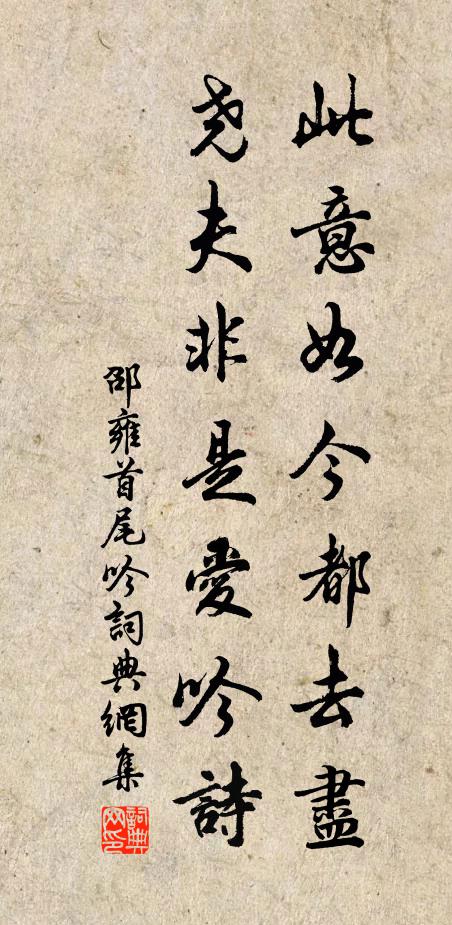 此意如今都去盡
堯夫非是愛吟詩
邵雍首尾吟詞典網集
詞典網印